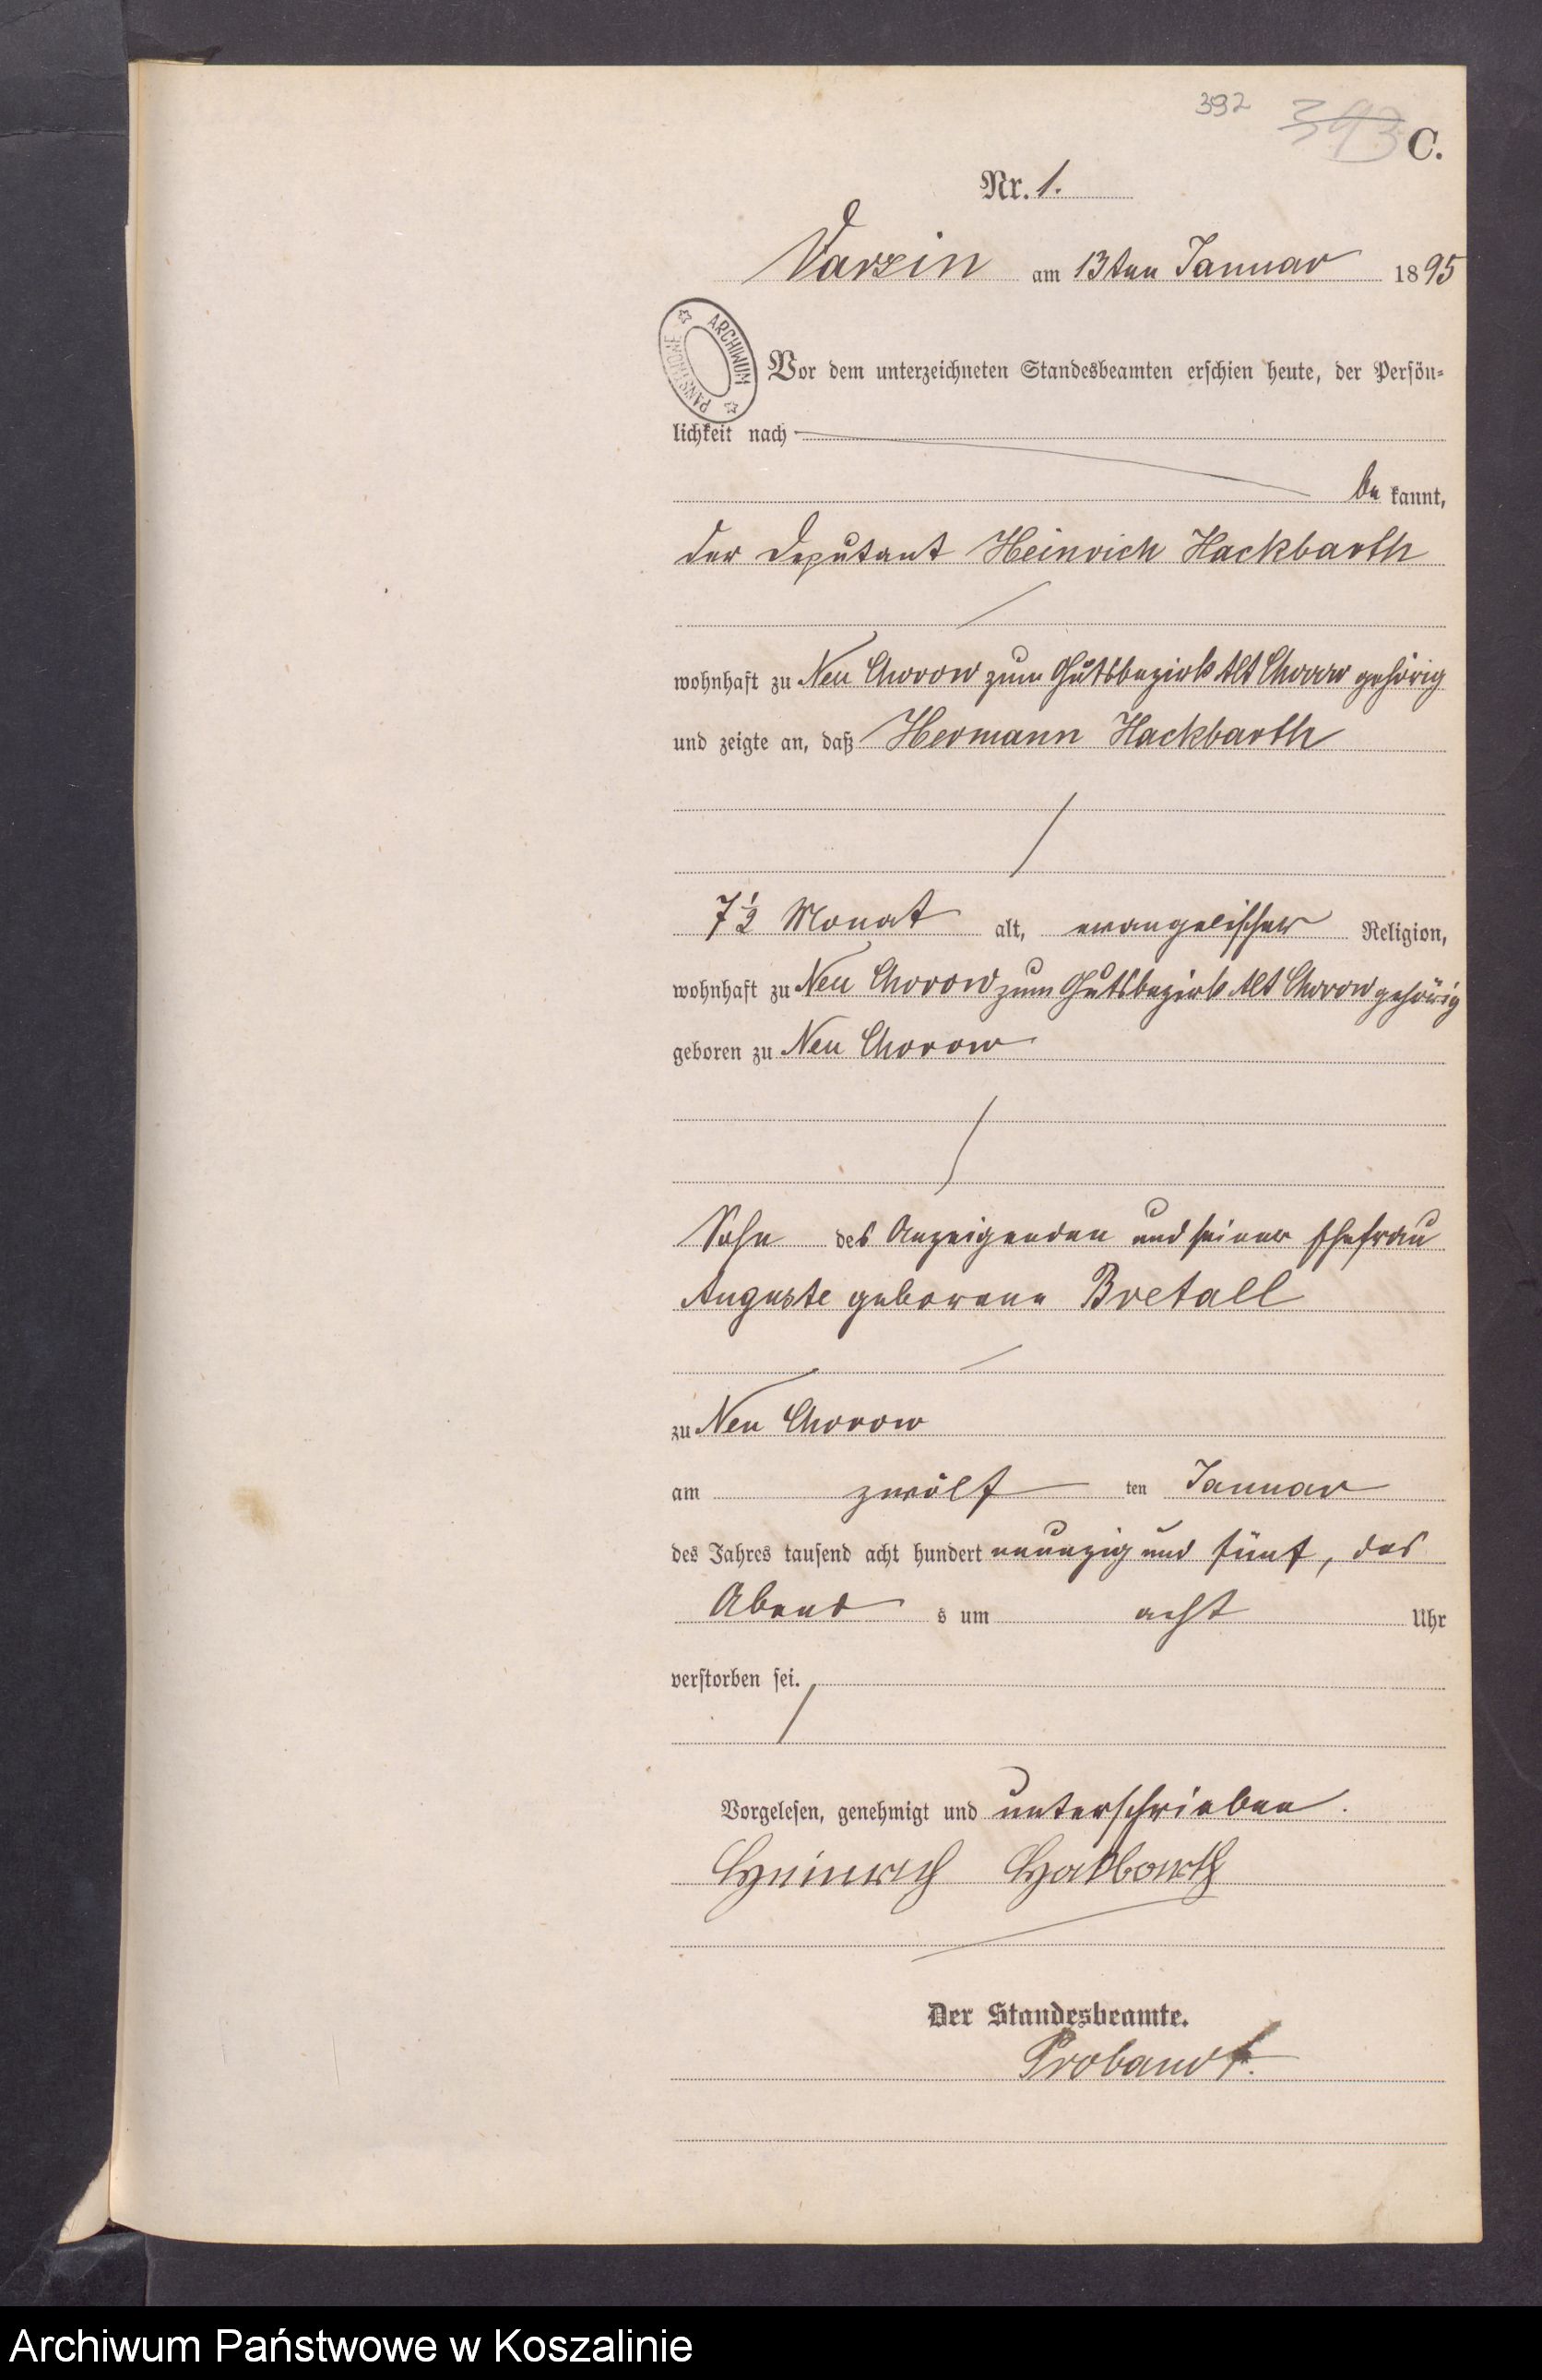 392 393 C.
Nr. 1.
Varzin am 13ten Januar 1895
ARCHIWUM PAŃSTWOWE
Vor dem unterzeichneten Standesbeamten erschien heute, der Persön-
lichkeit nach
be kannt,
der Deputant Heinrich Hackbarth
wohnhaft zu Neu Chorow zum Gutsbezirk Alt Chorow gehörig
und zeigte an, daß Hermann Hackbarth
7 1/2 Monat alt, evangelischer Religion,
wohnhaft zu Neu Chorow zum Gutsbezirk Alt Chorow gehörig
geboren zu Neu Chorow
Sohn des Anzeigenden und seiner Ehefrau
Auguste geborene Bretall
zu Neu Chorow
am zwölf ten Januar
des Jahres tausend acht hundert neunzig und fünf, des
Abend s um acht Uhr
verstorben sei.
Vorgelesen, genehmigt und unterschrieben.
Heinrich Hakbarth
Der Standesbeamte.
Probandt.
Archiwum Państwowe w Koszalinie